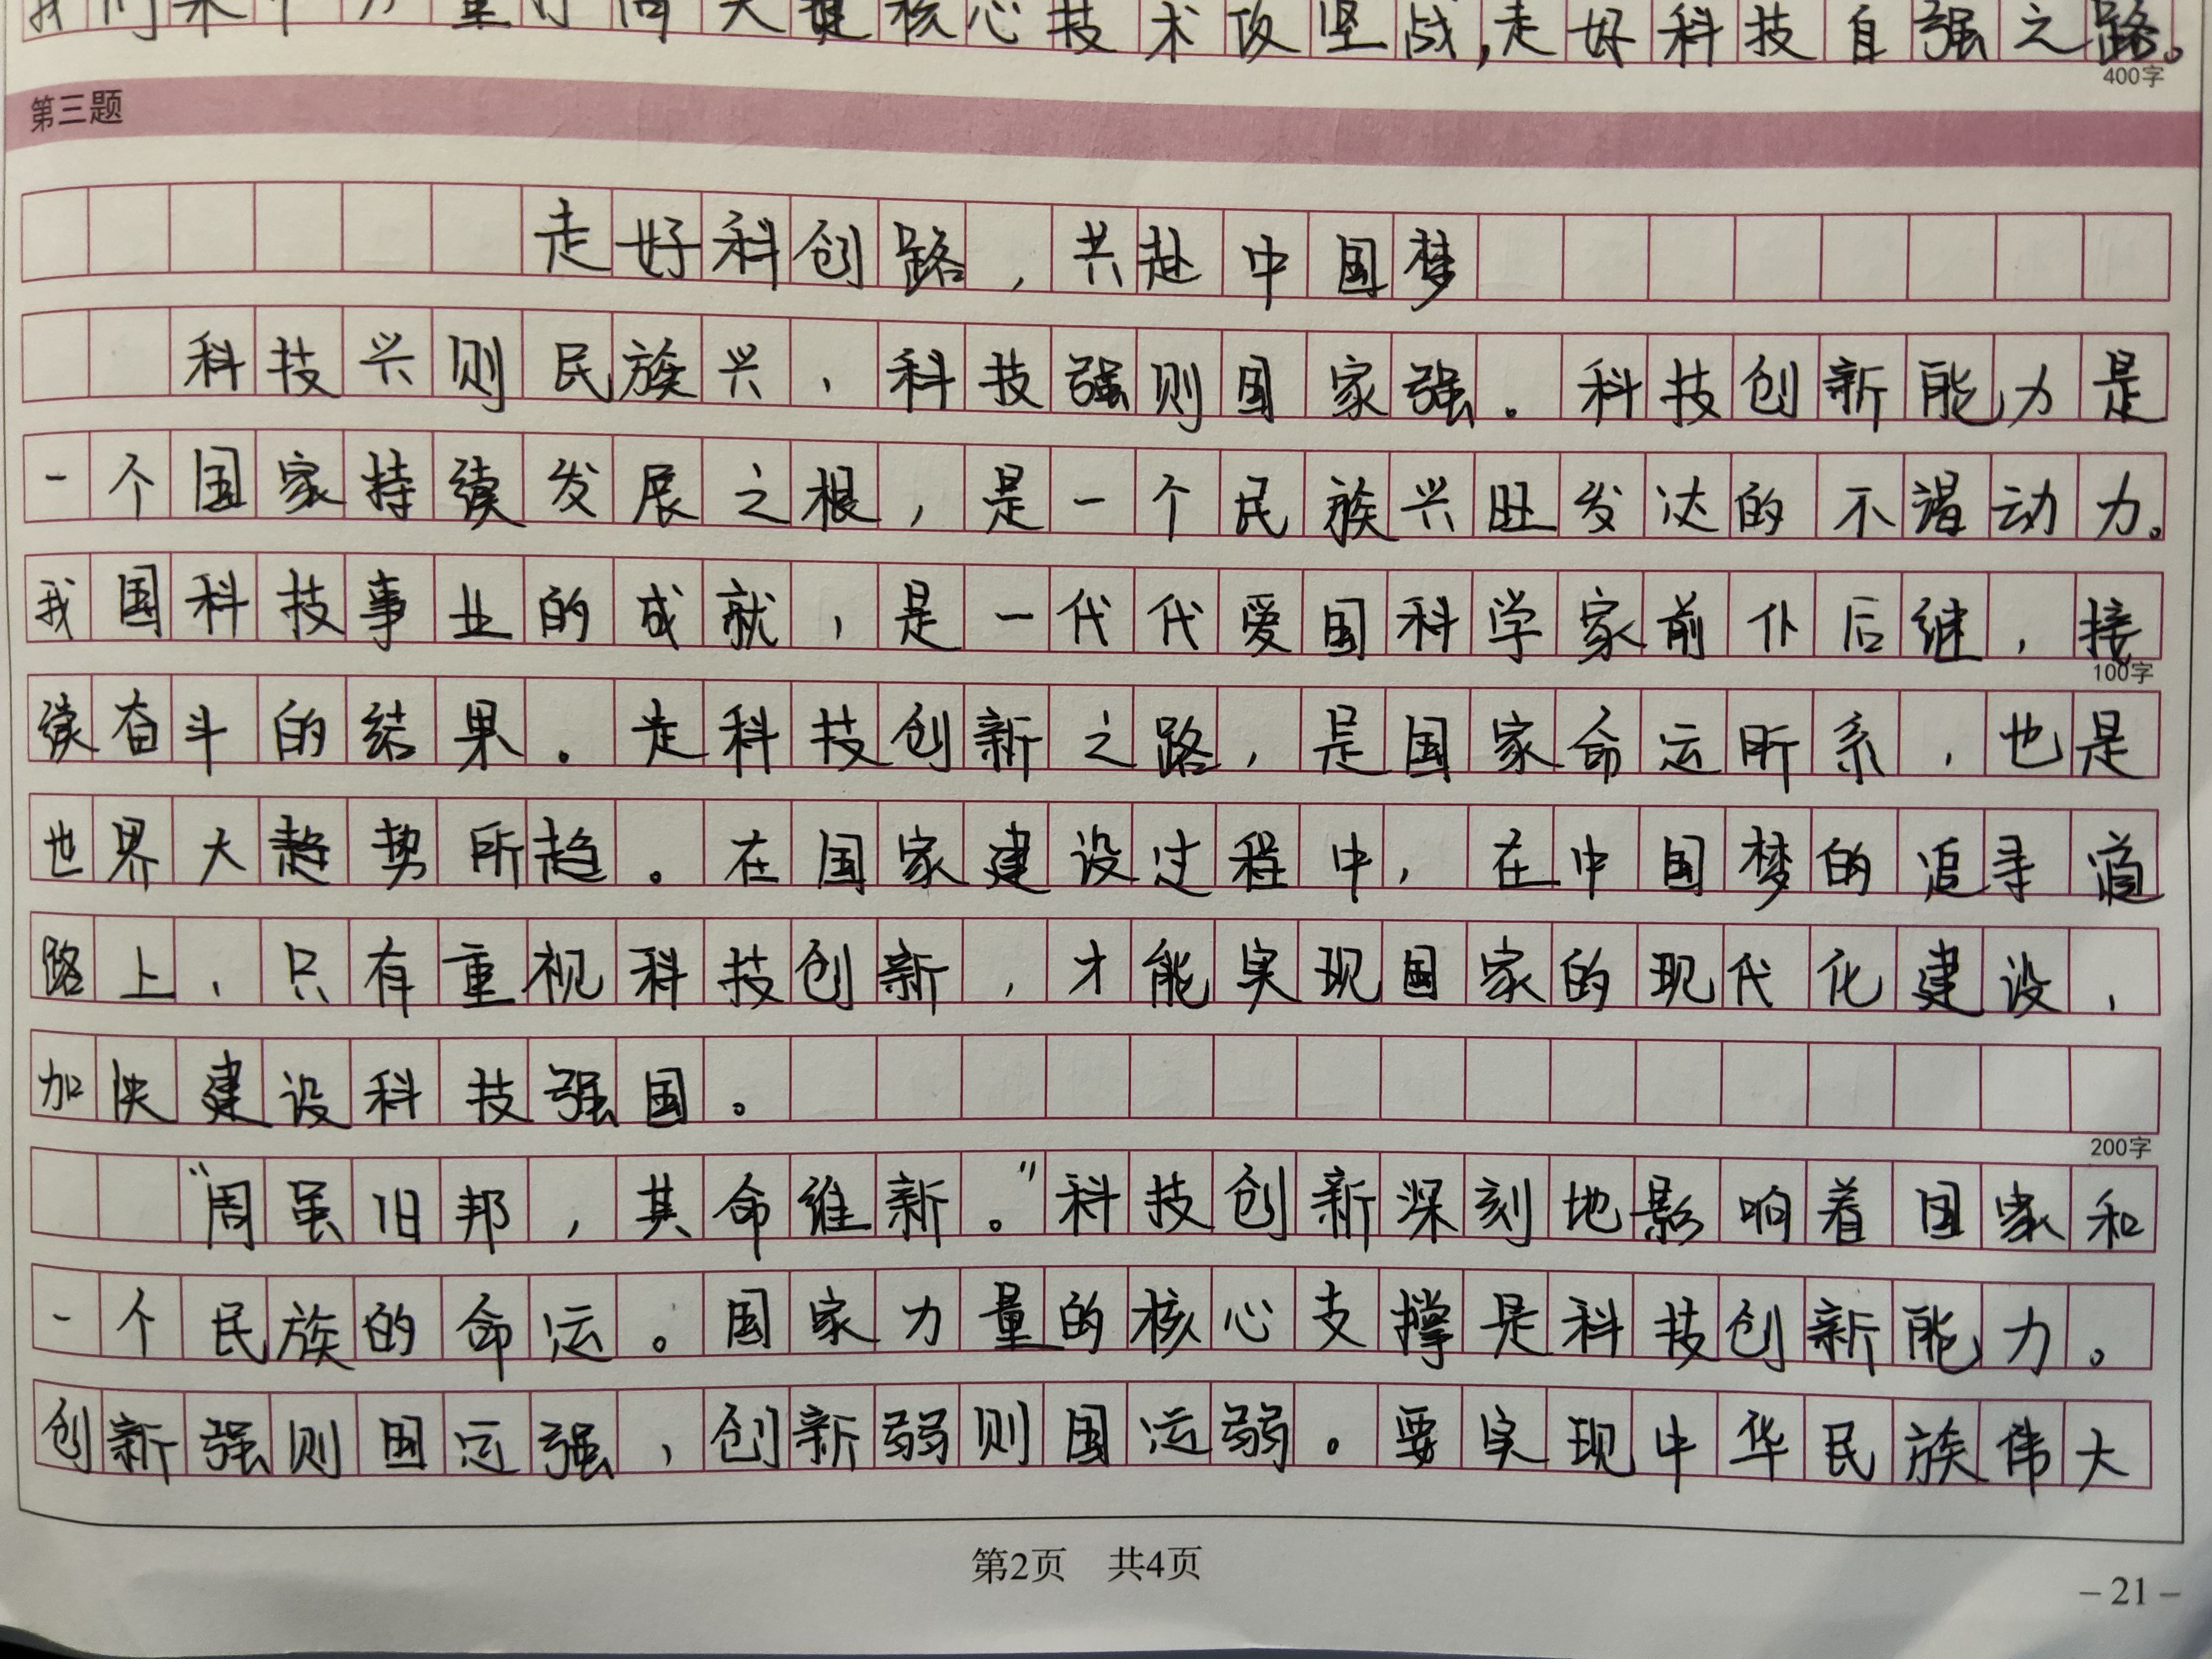 大建核心技术攻坚战,走好科技自强之路。
400字
第三题
走好科创路,共赴中国梦
科技兴则民族兴,科技强则国家强。科技创新能力是
一个国家持续发展之根,是一个民族兴旺发达的不竭动力。
我国科技事业的成就,是一代代爱国科学家前仆后继,接
100字
续奋斗的结果。走科技创新之路,是国家命运所系,也是
世界大趋势所趋。在国家建设过程中,在中国梦的追寻道
路上,只有重视科技创新,才能实现国家的现代化建设,
加快建设科技强国。
200字
“周虽旧邦,其命维新。”科技创新深刻地影响着国家和
一个民族的命运。国家力量的核心支撑是科技创新能力。
创新强则国运强,创新弱则国运弱。要实现中华民族伟大
第2页 共4页
–21–